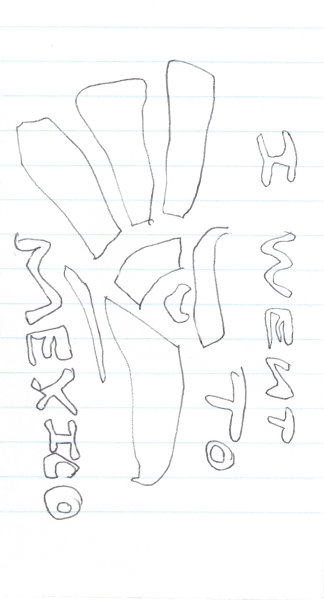 I WENT
TO
MEXICO